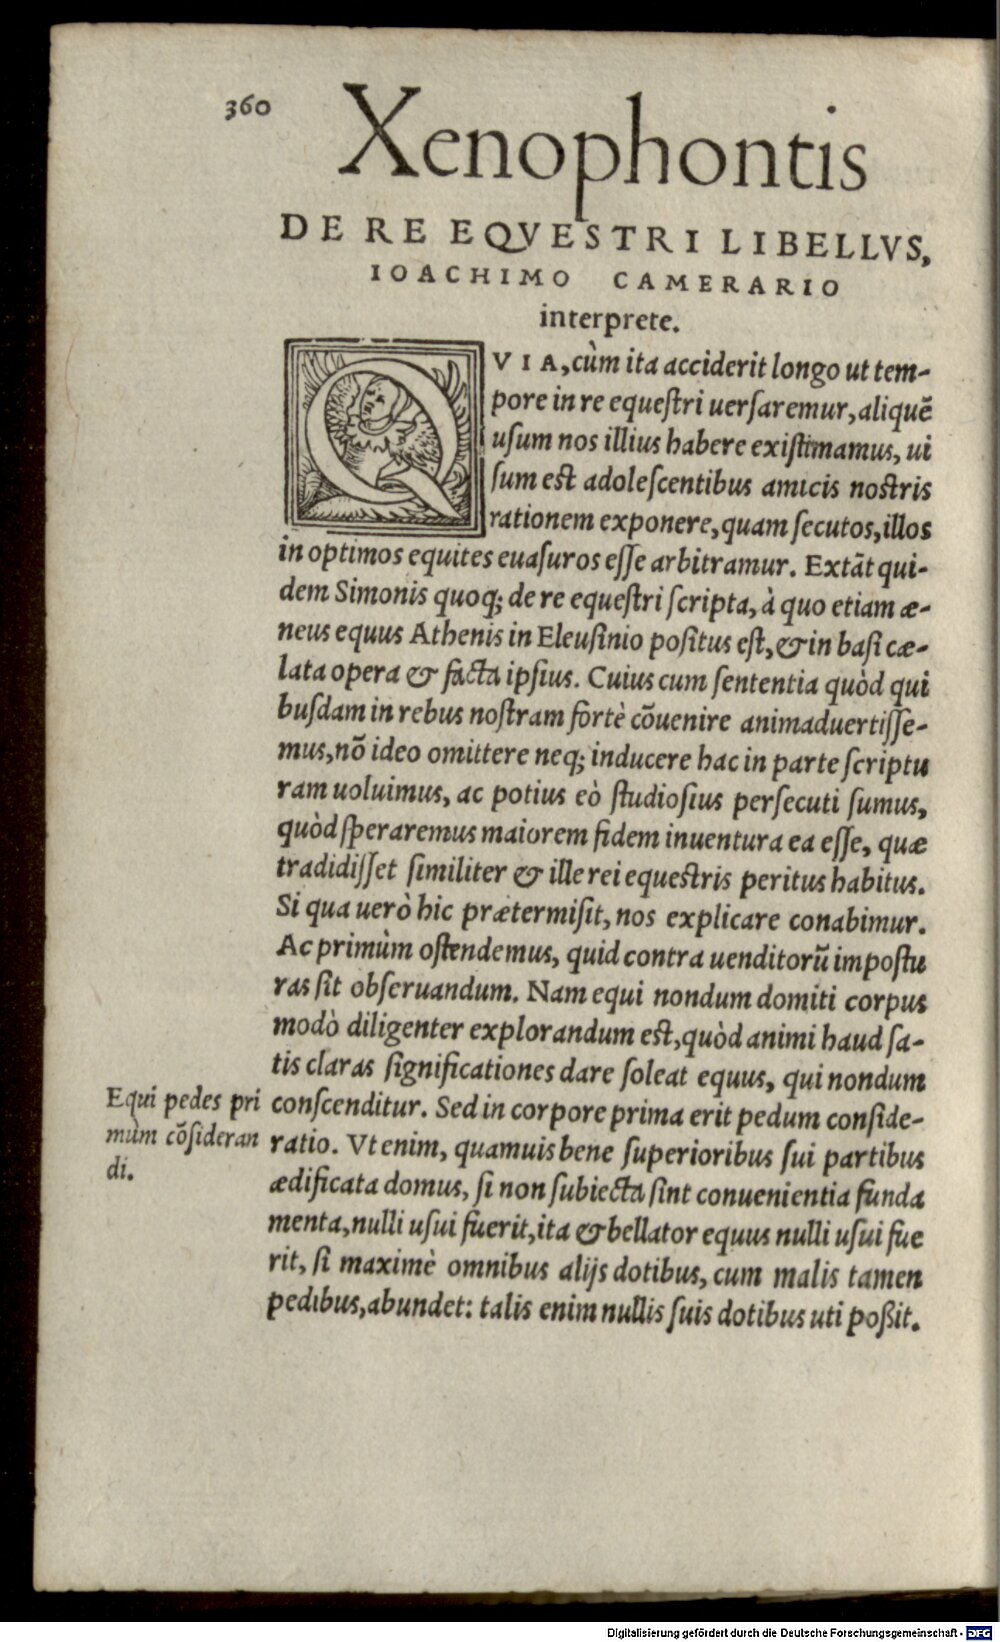 360
Xenophontis
DE RE EQVESTRI LIBELLVS,
IOACHIMO CAMERARIO
interprete.
QVIA, cùm ita acciderit longo ut tem-
pore in re equeſtri uerſaremur, aliquē
uſum nos illius habere exiſtimamus, ui
ſum est adoleſcentibus amicis nostris
rationem exponere, quam ſecutos, illos
in optimos equites euaſuros eſſe arbitramur. Extāt qui-
dem Simonis quoq; de re equeſtri ſcripta, à quo etiam æ-
neus equus Athenis in Eleuſinio poſitus eſt, & in baſi cæ-
lata opera & facta ipſius. Cuius cum ſententia quòd qui
buſdam in rebus noſtram fortè cōuenire animaduertiſſe-
mus, nō ideo omittere neq; inducere hac in parte ſcriptu
ram uoluimus, ac potius eò ſtudioſius perſecuti ſumus,
quòd ſperaremus maiorem fidem inuentura ea eſſe, quæ
tradidiſſet ſimiliter & ille rei equestris peritus habitus.
Si qua uerò hic prætermiſit, nos explicare conabimur.
Ac primùm oſtendemus, quid contra uenditorū impoſtu
ras ſit obſeruandum. Nam equi nondum domiti corpus
modò diligenter explorandum est, quòd animi haud ſa-
tis claras ſignificationes dare ſoleat equus, qui nondum
conſcenditur. Sed in corpore prima erit pedum conſide-
ratio. Vt enim, quamuis bene ſuperioribus ſui partibus
ædificata domus, ſi non ſubiecta ſint conuenientia funda
menta, nulli uſui fuerit, ita & bellator equus nulli uſui fue
rit, ſi maximè omnibus alijs dotibus, cum malis tamen
pedibus, abundet: talis enim nullis ſuis dotibus uti poßit.
Equi pedes pri
mùm cōſideran
di.
Digitalisierung gefördert durch die Deutsche Forschungsgemeinschaft - DFG